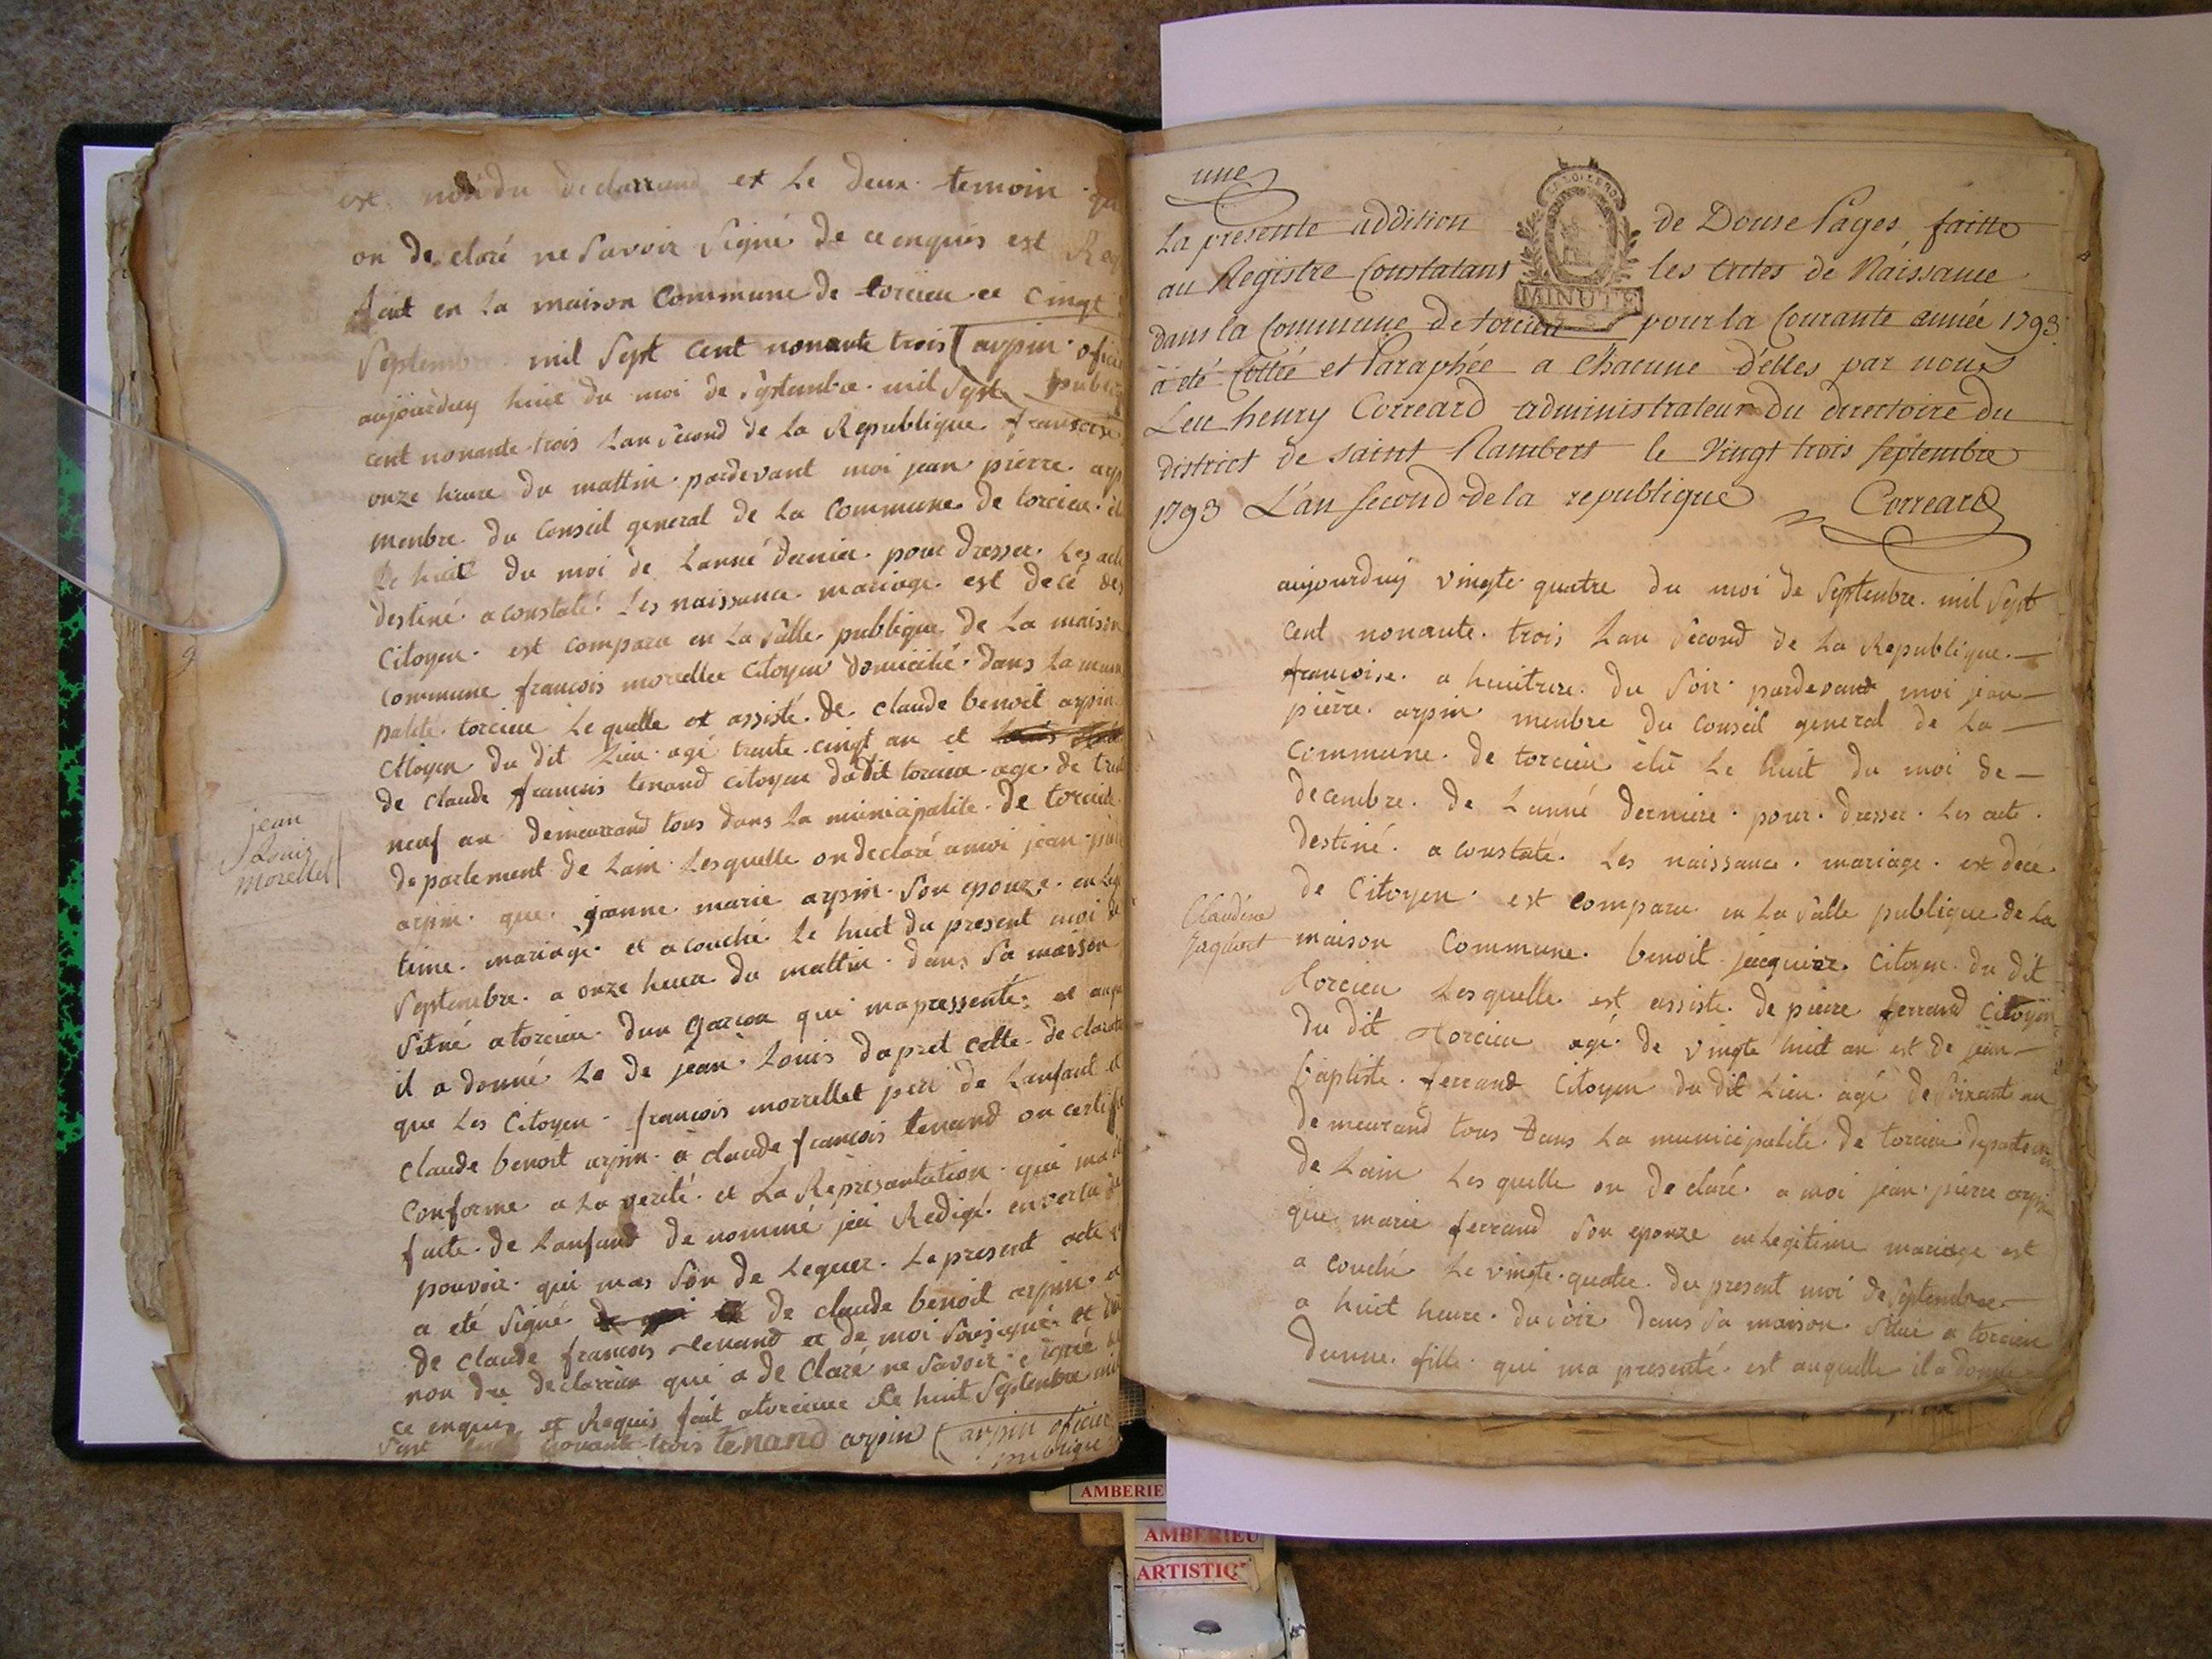 est non du declarrand et le deux temoin
on de claré ne Savoir Signé de ce enquis est
fait en la maison Commune de torcieu ce cingt
Septembre mil Sept cent nonante trois arpin oficier
publique
aujourduy huit du moi de Septembre mil Sept
cent nonante trois Lan Second de la Republique francoise
onze heure du mattin pardevant moi jean pierre arp
menbre du Conseil general de la Commune de torcieu
Le huit du moi de Lanné dernier pour dresser Les acte
destiné a constaté Les naissance mariage est decé des
Citoyen est comparu en La Salle publique de La maison
Commune francois morellet Citoyen domicilié dans La muni
palité torcieu Lequelle et assisté de claude benoit arpin
Citoyen du dit Lieu agé trante cingt an et
de claude francois tenand citoyen du dit torcieu age de trente
neuf an demeurrand tous dans La municipalité de torcieu
departement de Lain Lesquelle on declaré a moi jean pierre
arpin que jeanne marie arpin Son epouze en Legi
time mariage et a couché Le huit du present moi de
Septembre a onze heure du mattin dans Sa maison
Situé a torcieu dun garcon qui ma pressenté et auquel
il a donné Le de jean Louis dapret cette declarati
que Les Citoyen francois morrellet peré de Lanfant et
claude benoit arpin a claude francois tenand on certifié
Conforme a La verité et La Représantation qui ma
faite de Lanfant de nommé jai Redigé en vertu de
pouvoir qui mas Son de Leguer Le present acte
a eté Signé de claude benoit arpin
de claude francois tenand et de moi Sousigné et
non du declarrin qui a de Claré ne Savoir Signé de
ce enquis et Requis fait a torcieu Le huit Septembre mil
Sept cent nonante trois tenand arpin arpin oficier
publique
jean
Louis
morellet
une
La presente addition de Douse Pages faitte
au Registre Constatant les Actes de Naissance
MINUTE
dans la Commune de torcieu pour la Courante année 1793
à été Cottée et Paraphée a Chacune d'elles par nous
Leu henry Correard administrateur du directoire du
district de saint Rambert le Vingt trois septembre
1793 L'an second de la republique Correard
aujourduy vingte quatre du moi de Septembre mil Sept
cent nonante trois Lan Second de La Republique
francoise a huitrure du Soir pardevant moi jean
pierre arpin menbre du Conseil general de La
Commune de torcieu élü Le huit du moi de
decembre de Lanné derniere pour dresser Les acte
destiné a constaté Les naissance mariage est dece
de Citoyen est comparu en La Salle publique de La
maison Commune benoit jacquier Citoyen du dit
torcieu Lesquelle est assisté de pierre ferrand Citoyen
du dit torcieu agé de vingte huit an est de jean
baptiste ferrand Citoyen du dit Lieu agé de Soixant an
demeurand tous Dans La municipalité de torcieu departemen
de Lain Lesquelle on declaré a moi jean pierre arpin
que marie ferrand Son epouze en Legitime mariage est
a couché Le vingte quatre du present moi de Septembre
a huit heure du Soir dans Sa maison Situé a torcieu
dunne fille qui ma presenté est auquelle il a donné
Claudine
Jaquiert
AMBERIEU
AMBERIEU
ARTISTIQ